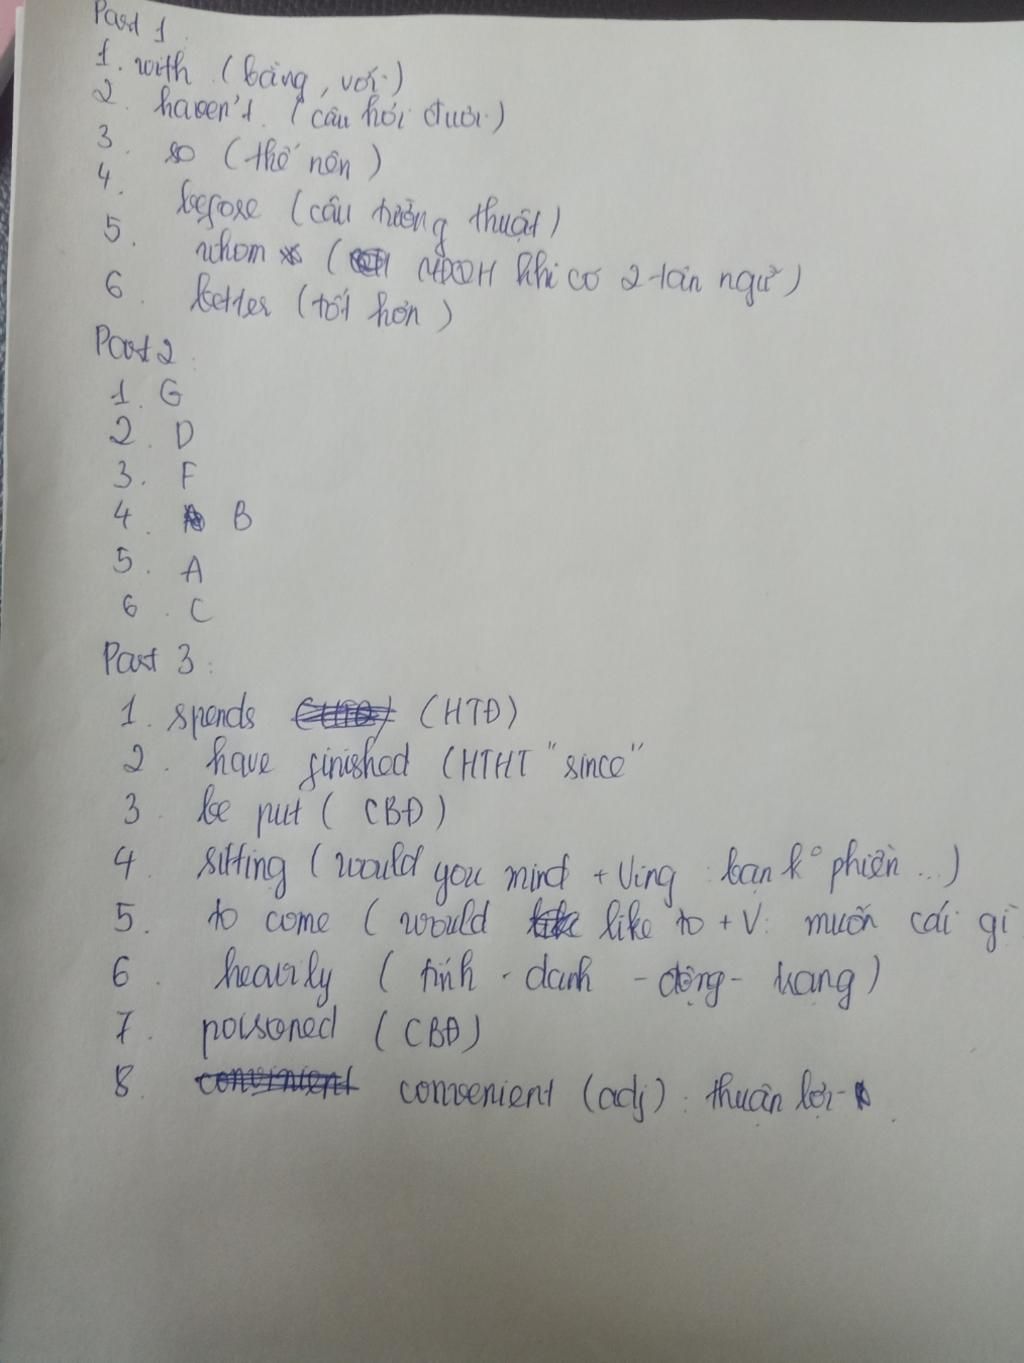 Part 1
1. with (bằng, với)
2. haven't (câu hỏi đuôi)
3. so (thế nên)
4. before (câu tường thuật)
5. whom ( MĐQH khi có 2 tân ngữ)
6. better (tốt hơn)
Part 2
1. G
2. D
3. F
4. B
5. A
6. C
Part 3:
1. spends (HTĐ)
2. have finished (HTHT "since"
3. be put ( CBĐ)
4. sitting (would you mind + Ving : bạn k° phiền ...)
5. to come ( would like to + V: muốn cái gì
6. heavily ( tính - danh - động - trạng)
7. poisoned (CBĐ)
8. convenient (adj) : thuận lợi